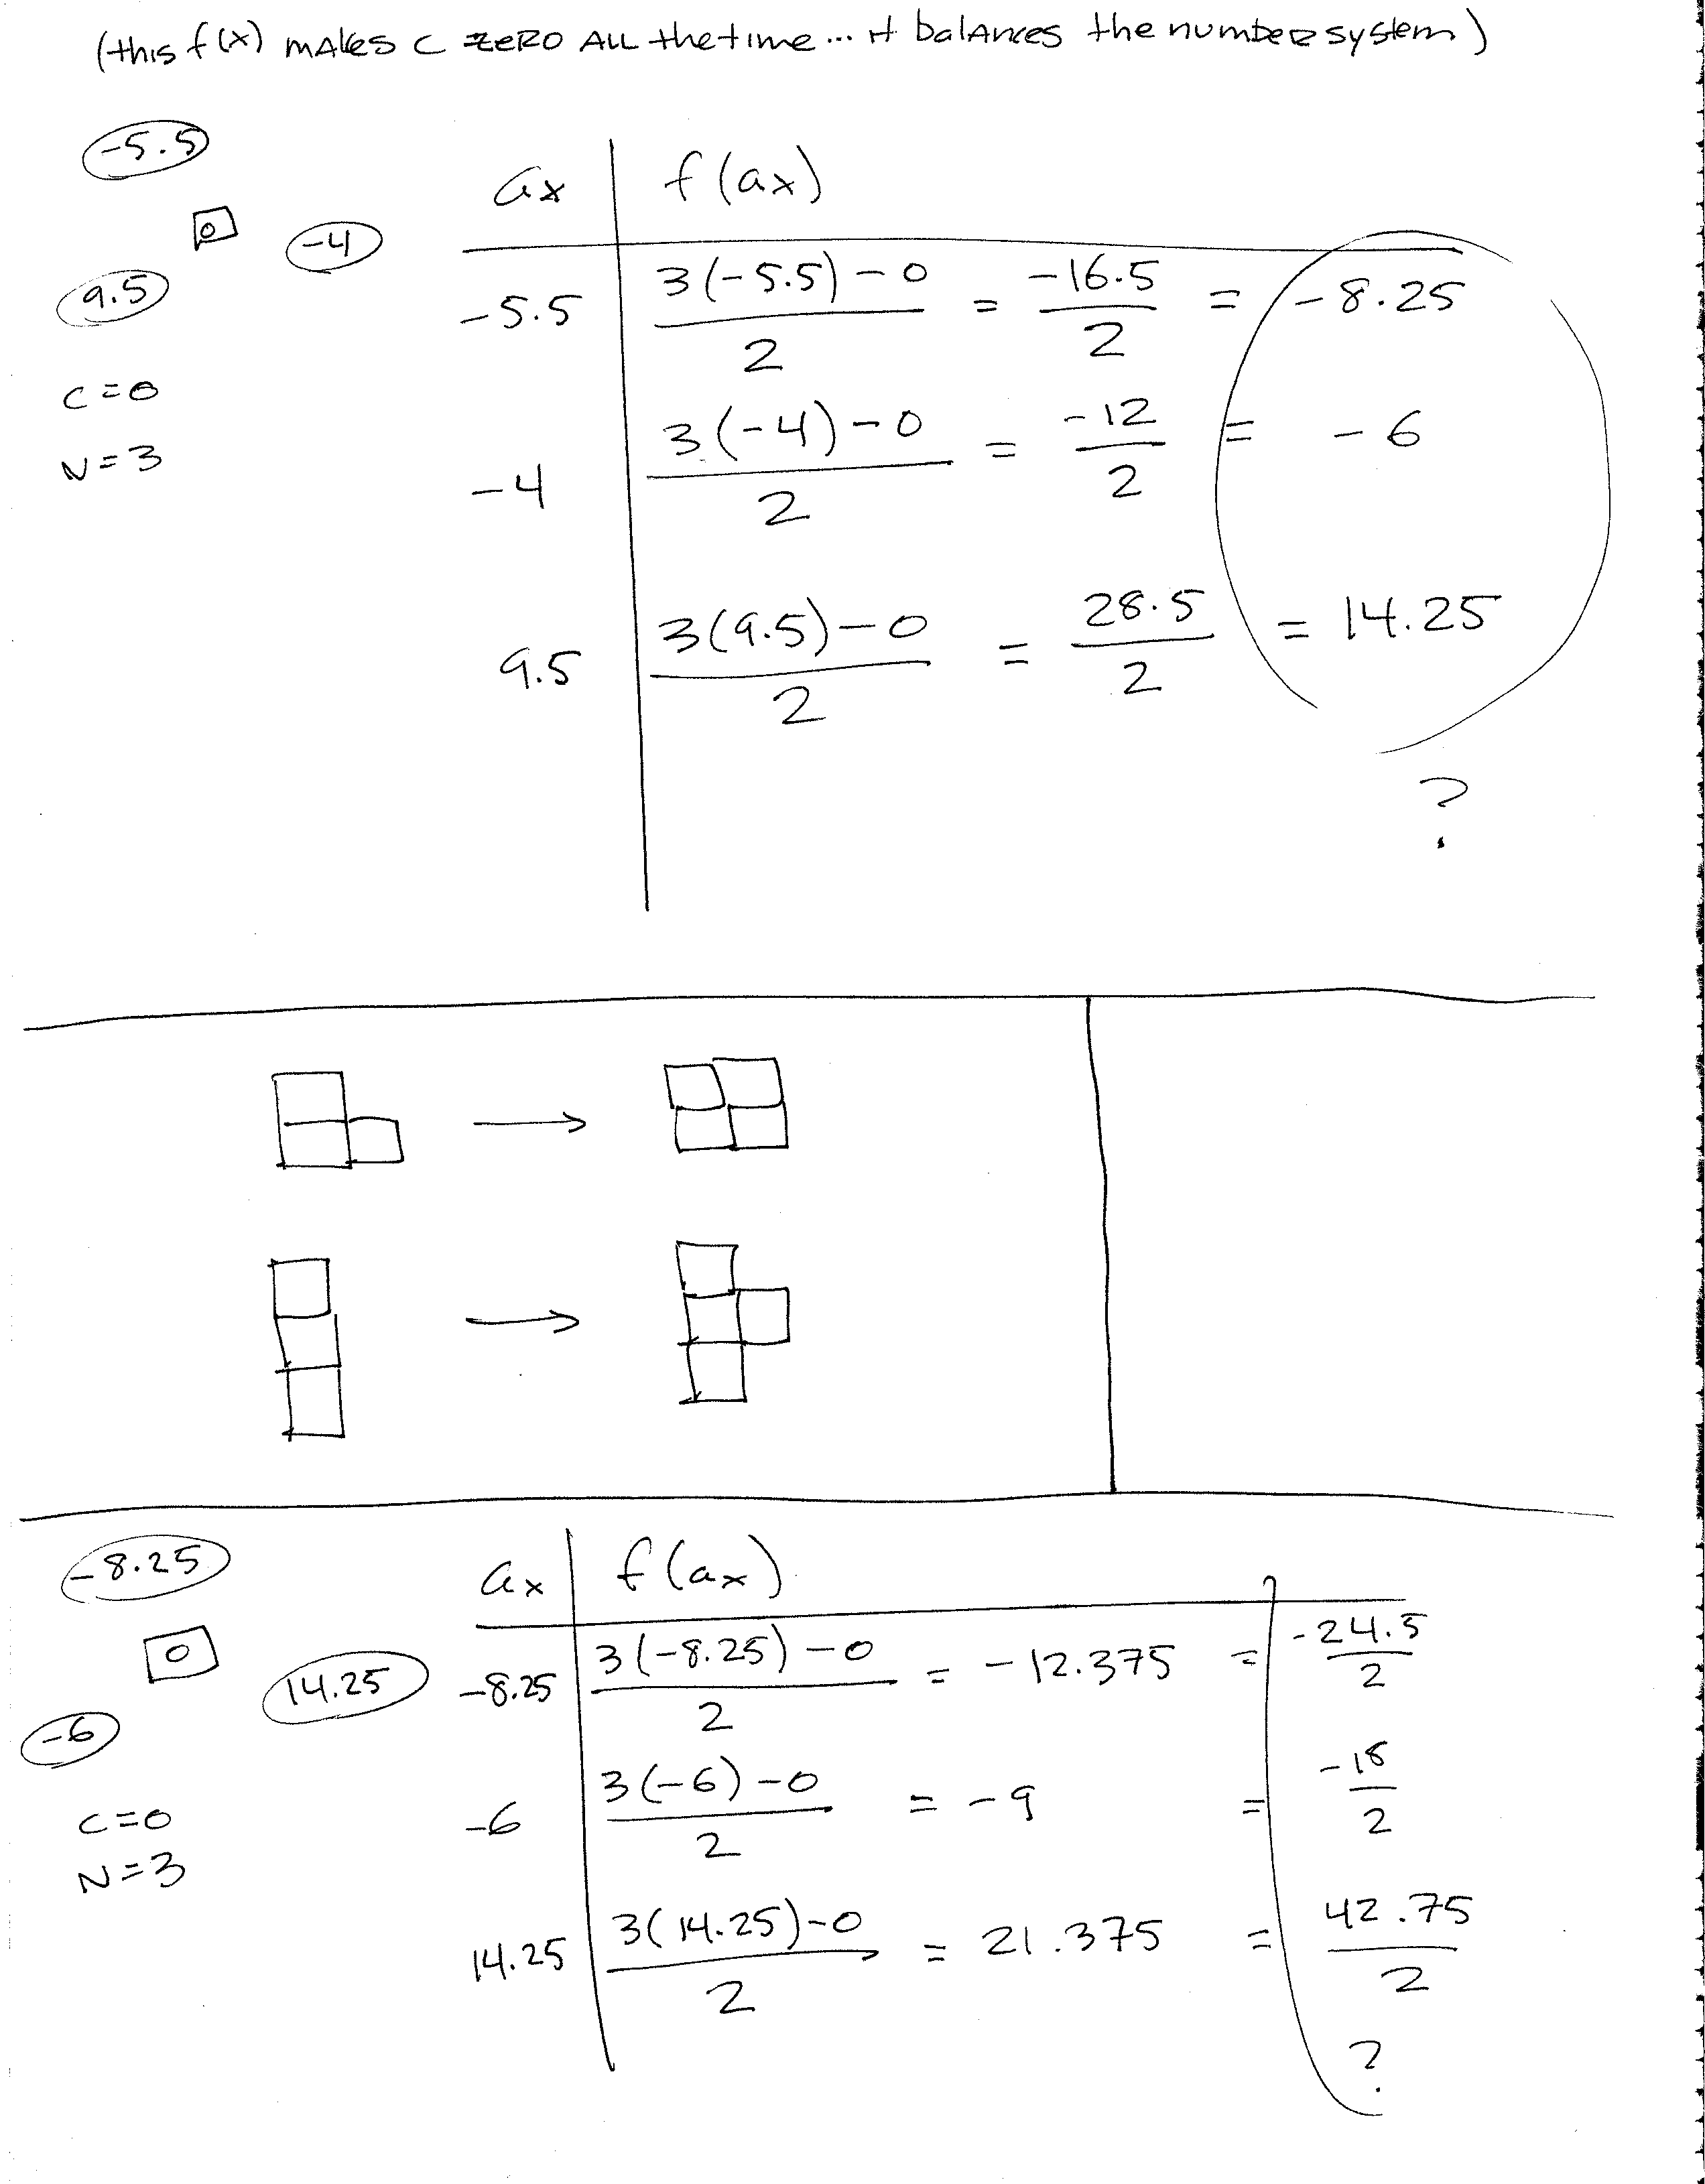 (this f(x) makes C ZERO ALL the time... it balances the number system)
-5.5
0
-4
9.5
C=0
N=3
ax f(ax)
-5.5 3(-5.5)-0/2 = -16.5/2 = -8.25
-4 3(-4)-0/2 = -12/2 = -6
9.5 3(9.5)-0/2 = 28.5/2 = 14.25
?
-8.25
0
14.25
-6
C=0
N=3
ax f(ax)
-8.25 3(-8.25)-0/2 = -12.375 = -24.5/2
-6 3(-6)-0/2 = -9 = -18/2
14.25 3(14.25)-0/2 = 21.375 = 42.75/2
?